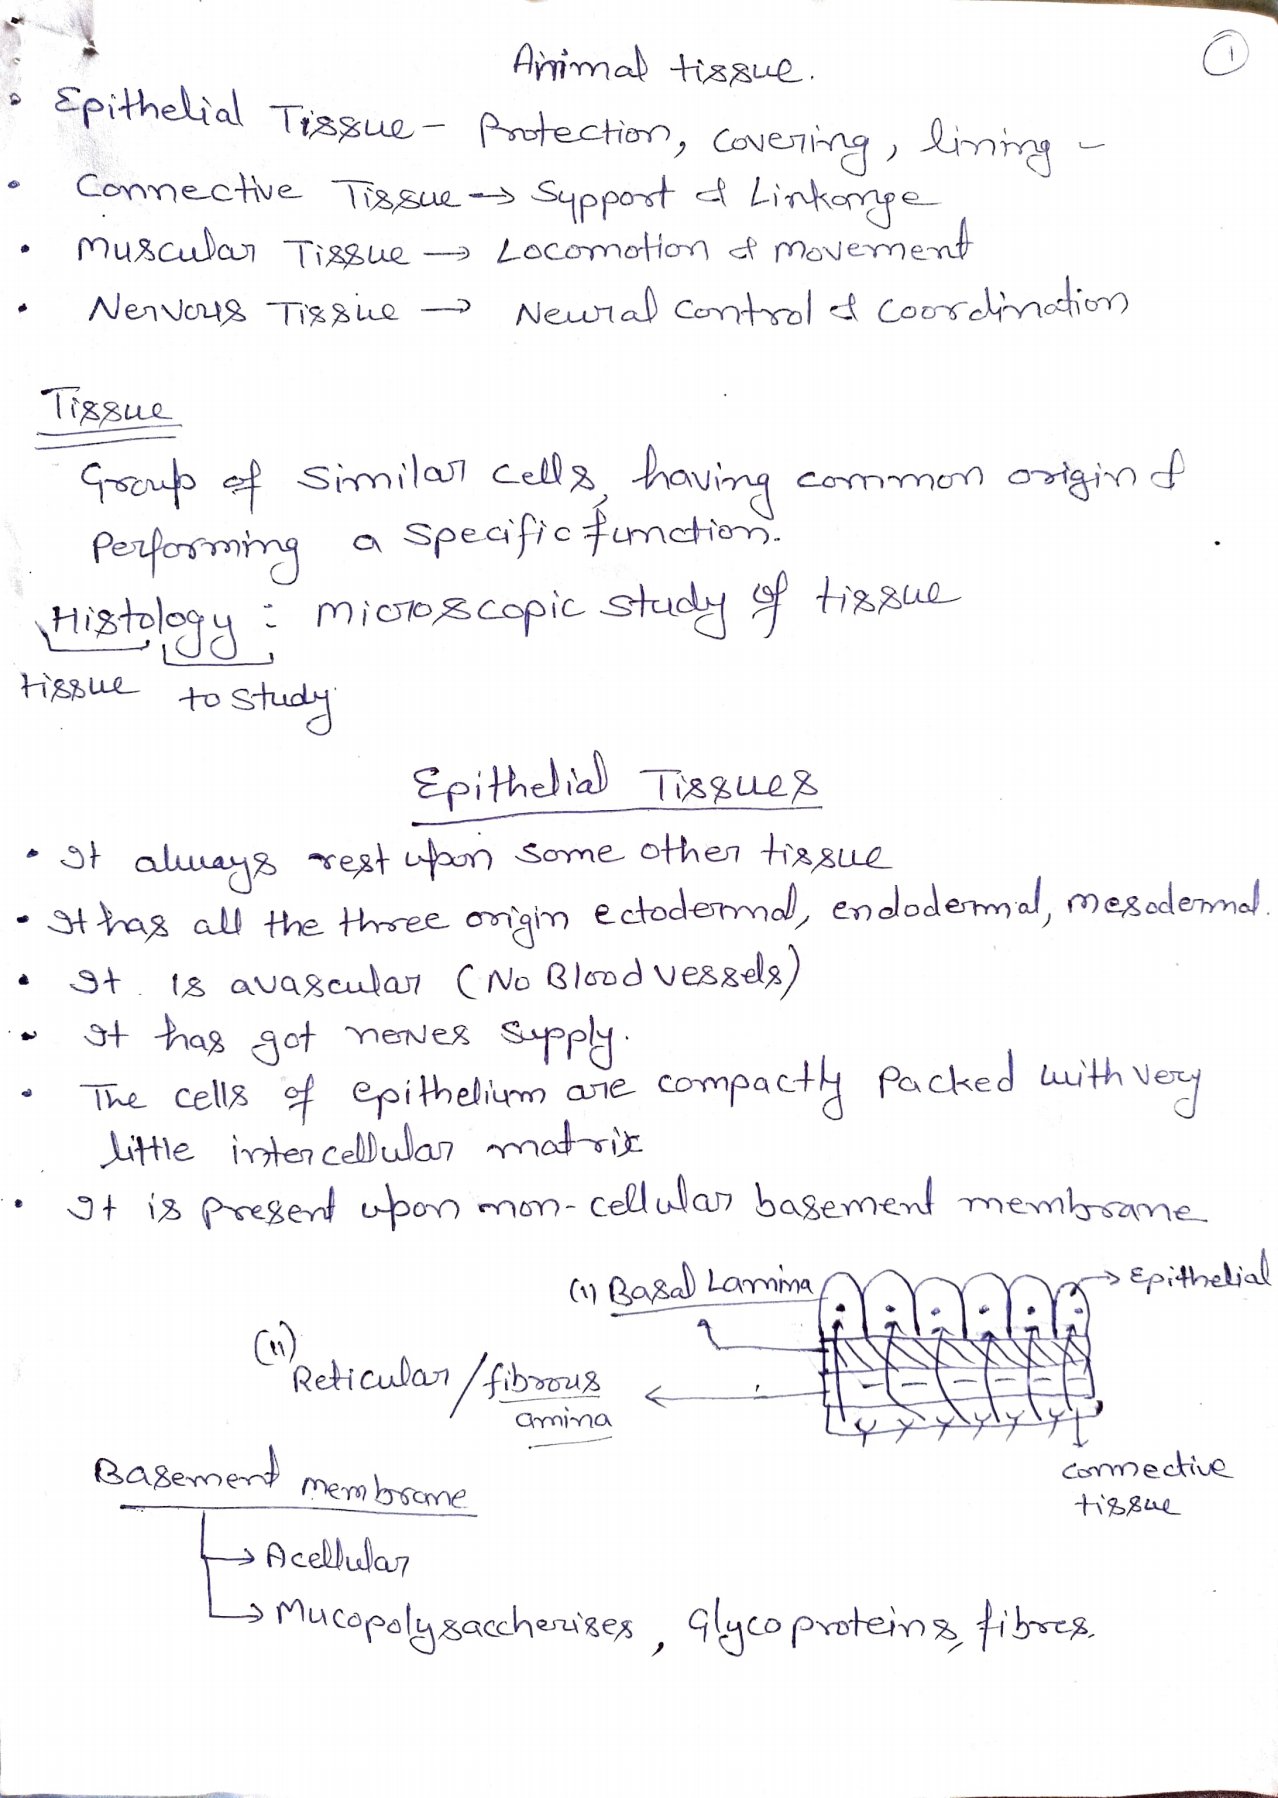 1
Animal tissue.
• Epithelial Tissue – Protection, covering, lining –
• Connective Tissue → Support & Linkange
• Muscular Tissue → Locomotion & movement
• Nervous Tissue → Neural Control & Coordination
Tissue
Group of similar cells, having common origin &
Performing a specific function.
Histology : microscopic study of tissue
tissue to study
Epithelial Tissues
• It always rest upon some other tissue
• It has all the three origin ectodermal, endodermal, mesodermal.
• It is avascular (No Blood vessels)
• It has got nerves supply.
• The cells of epithelium are compactly Packed with very
little intercellular matrix
• It is present upon non-cellular basement membrane
(i) Basal Lamina → Epithelial
(ii) Reticular / fibrous
amina
connective
tissue
Basement membrane
→ Acellular
→ Mucopolysaccherises, Glycoproteins, fibres.